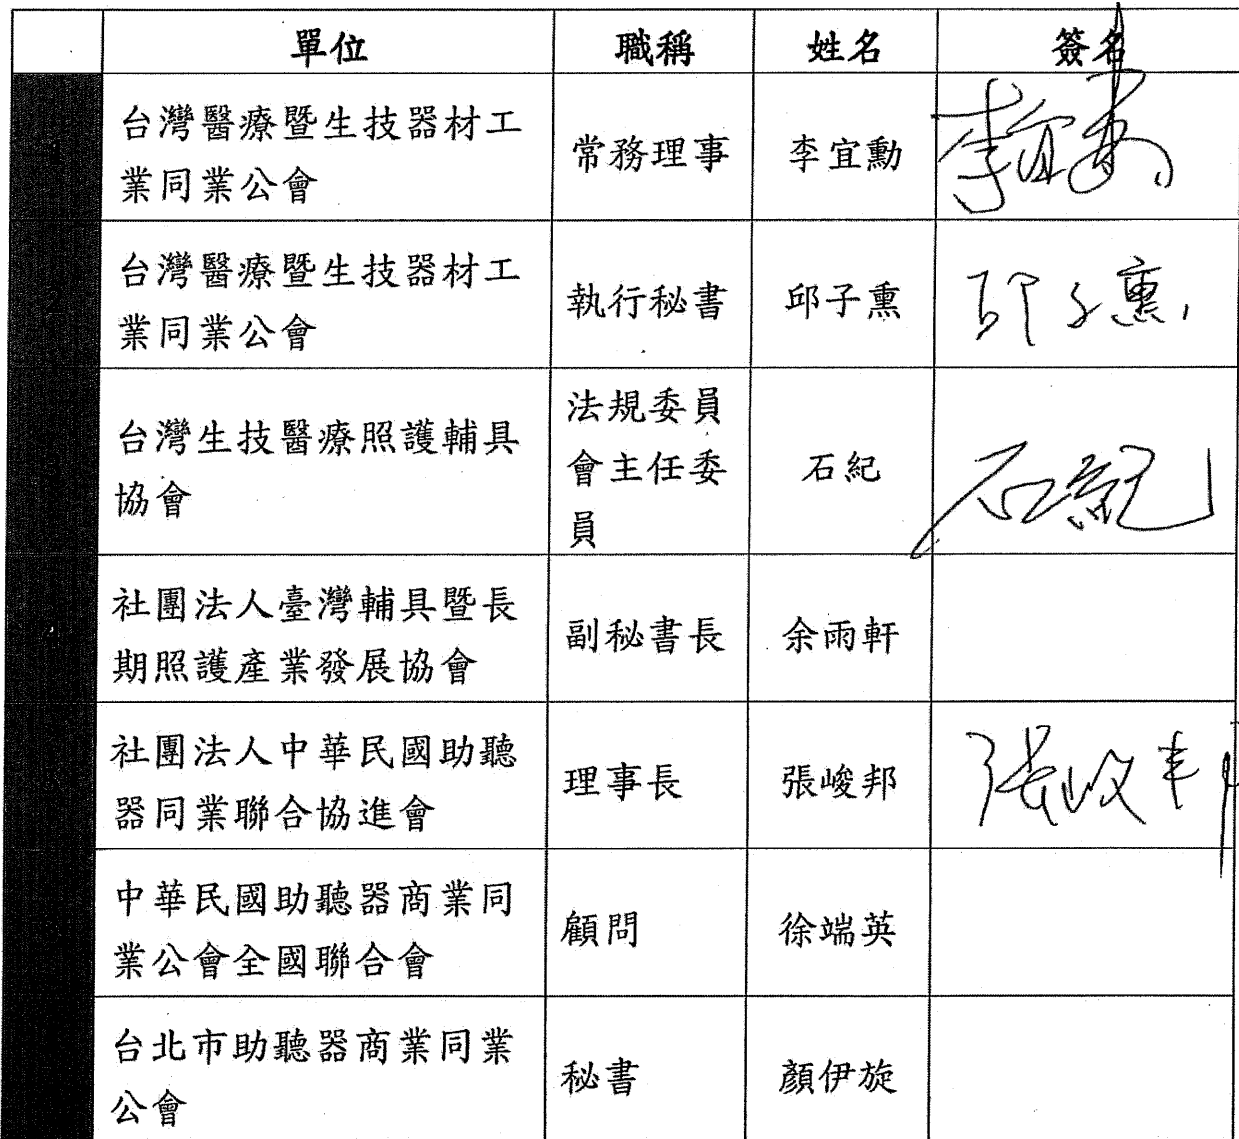 單位 職稱 姓名 簽名
台灣醫療暨生技器材工
業同業公會
常務理事 李宜勳 李宜勳
台灣醫療暨生技器材工
業同業公會
執行秘書 邱子熏 邱子熏
台灣生技醫療照護輔具
協會
法規委員
會主任委
員
石紀 石紀
社團法人臺灣輔具暨長
期照護產業發展協會
副秘書長 余雨軒
社團法人中華民國助聽
器同業聯合協進會
理事長 張峻邦 張峻邦
中華民國助聽器商業同
業公會全國聯合會
顧問 徐端英
台北市助聽器商業同業
公會
秘書 顏伊旋